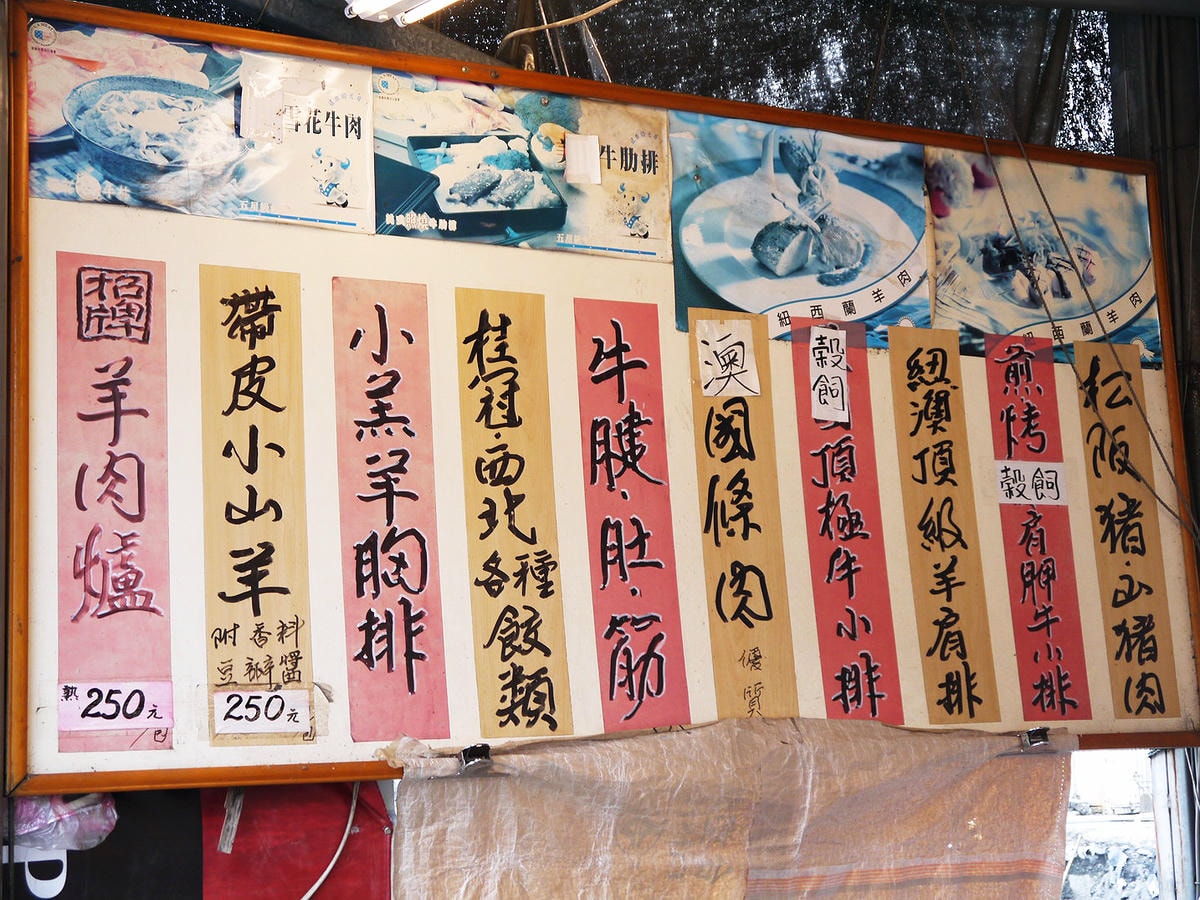 雪花牛肉
五星級
牛肋排
美式照燒牛肋排
五星級
紐西蘭羊肉
紐西蘭羊肉
招牌
羊肉爐
熱250元
帶皮小山羊
附香料
豆瓣醬
250元
小羔羊胸排
桂冠·西北各種餃類
牛腱·肚·筋
澳國條肉
優質
穀飼
頂極牛小排
紐澳頂級羊肩排
煎烤
穀飼
肩胛牛小排
松阪豬·山豬肉